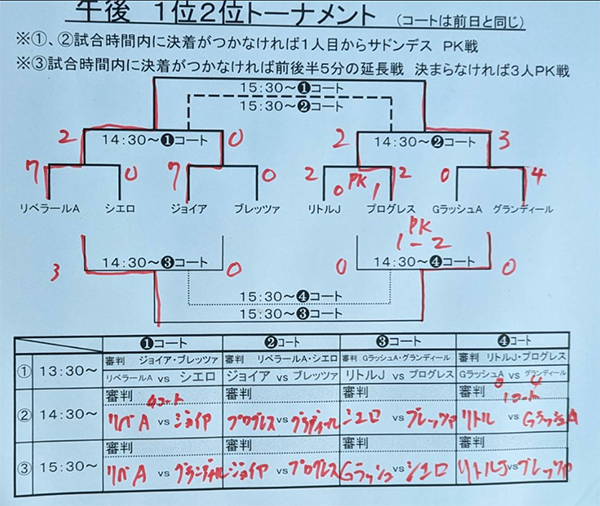 午後 1位2位トーナメント （コートは前日と同じ）
※①、②試合時間内に決着がつかなければ1人目からサドンデス PK戦
※③試合時間内に決着がつかなければ前後半5分の延長戦 決まらなければ3人PK戦
15:30～❶コート
15:30～❷コート
2 14:30～❶コート 0 2 14:30～❷コート 3
7 0 7 0 2 0 PK 1 2 0 4
リベラールA シエロ ジョイア ブレッツァ リトルJ プログレス GラッシュA グランディール
PK
1-2
3 14:30～❸コート 0 0 14:30～❹コート 0
15:30～❹コート
15:30～❸コート
❶コート ❷コート ❸コート ❹コート
① 13:30～ 審判 ジョイア・ブレッツァ 審判 リベラールA・シエロ 審判 GラッシュA・グランディール 審判 リトルJ・プログレス
リベラールA vs シエロ ジョイア vs ブレッツァ リトルJ vs プログレス GラッシュA vs グランディール
0 4
② 14:30～ 審判 4コート 審判 審判 審判 1コート
リベA vs ジョイヤ プログレス vs グランディール シエロ vs ブレッツァ リトル vs GラッシュA
③ 15:30～ 審判 審判 審判 審判
リベA vs グランディール ジョイヤ vs プログレス Gラッシュ vs シエロ リトルJ vs ブレッツァ